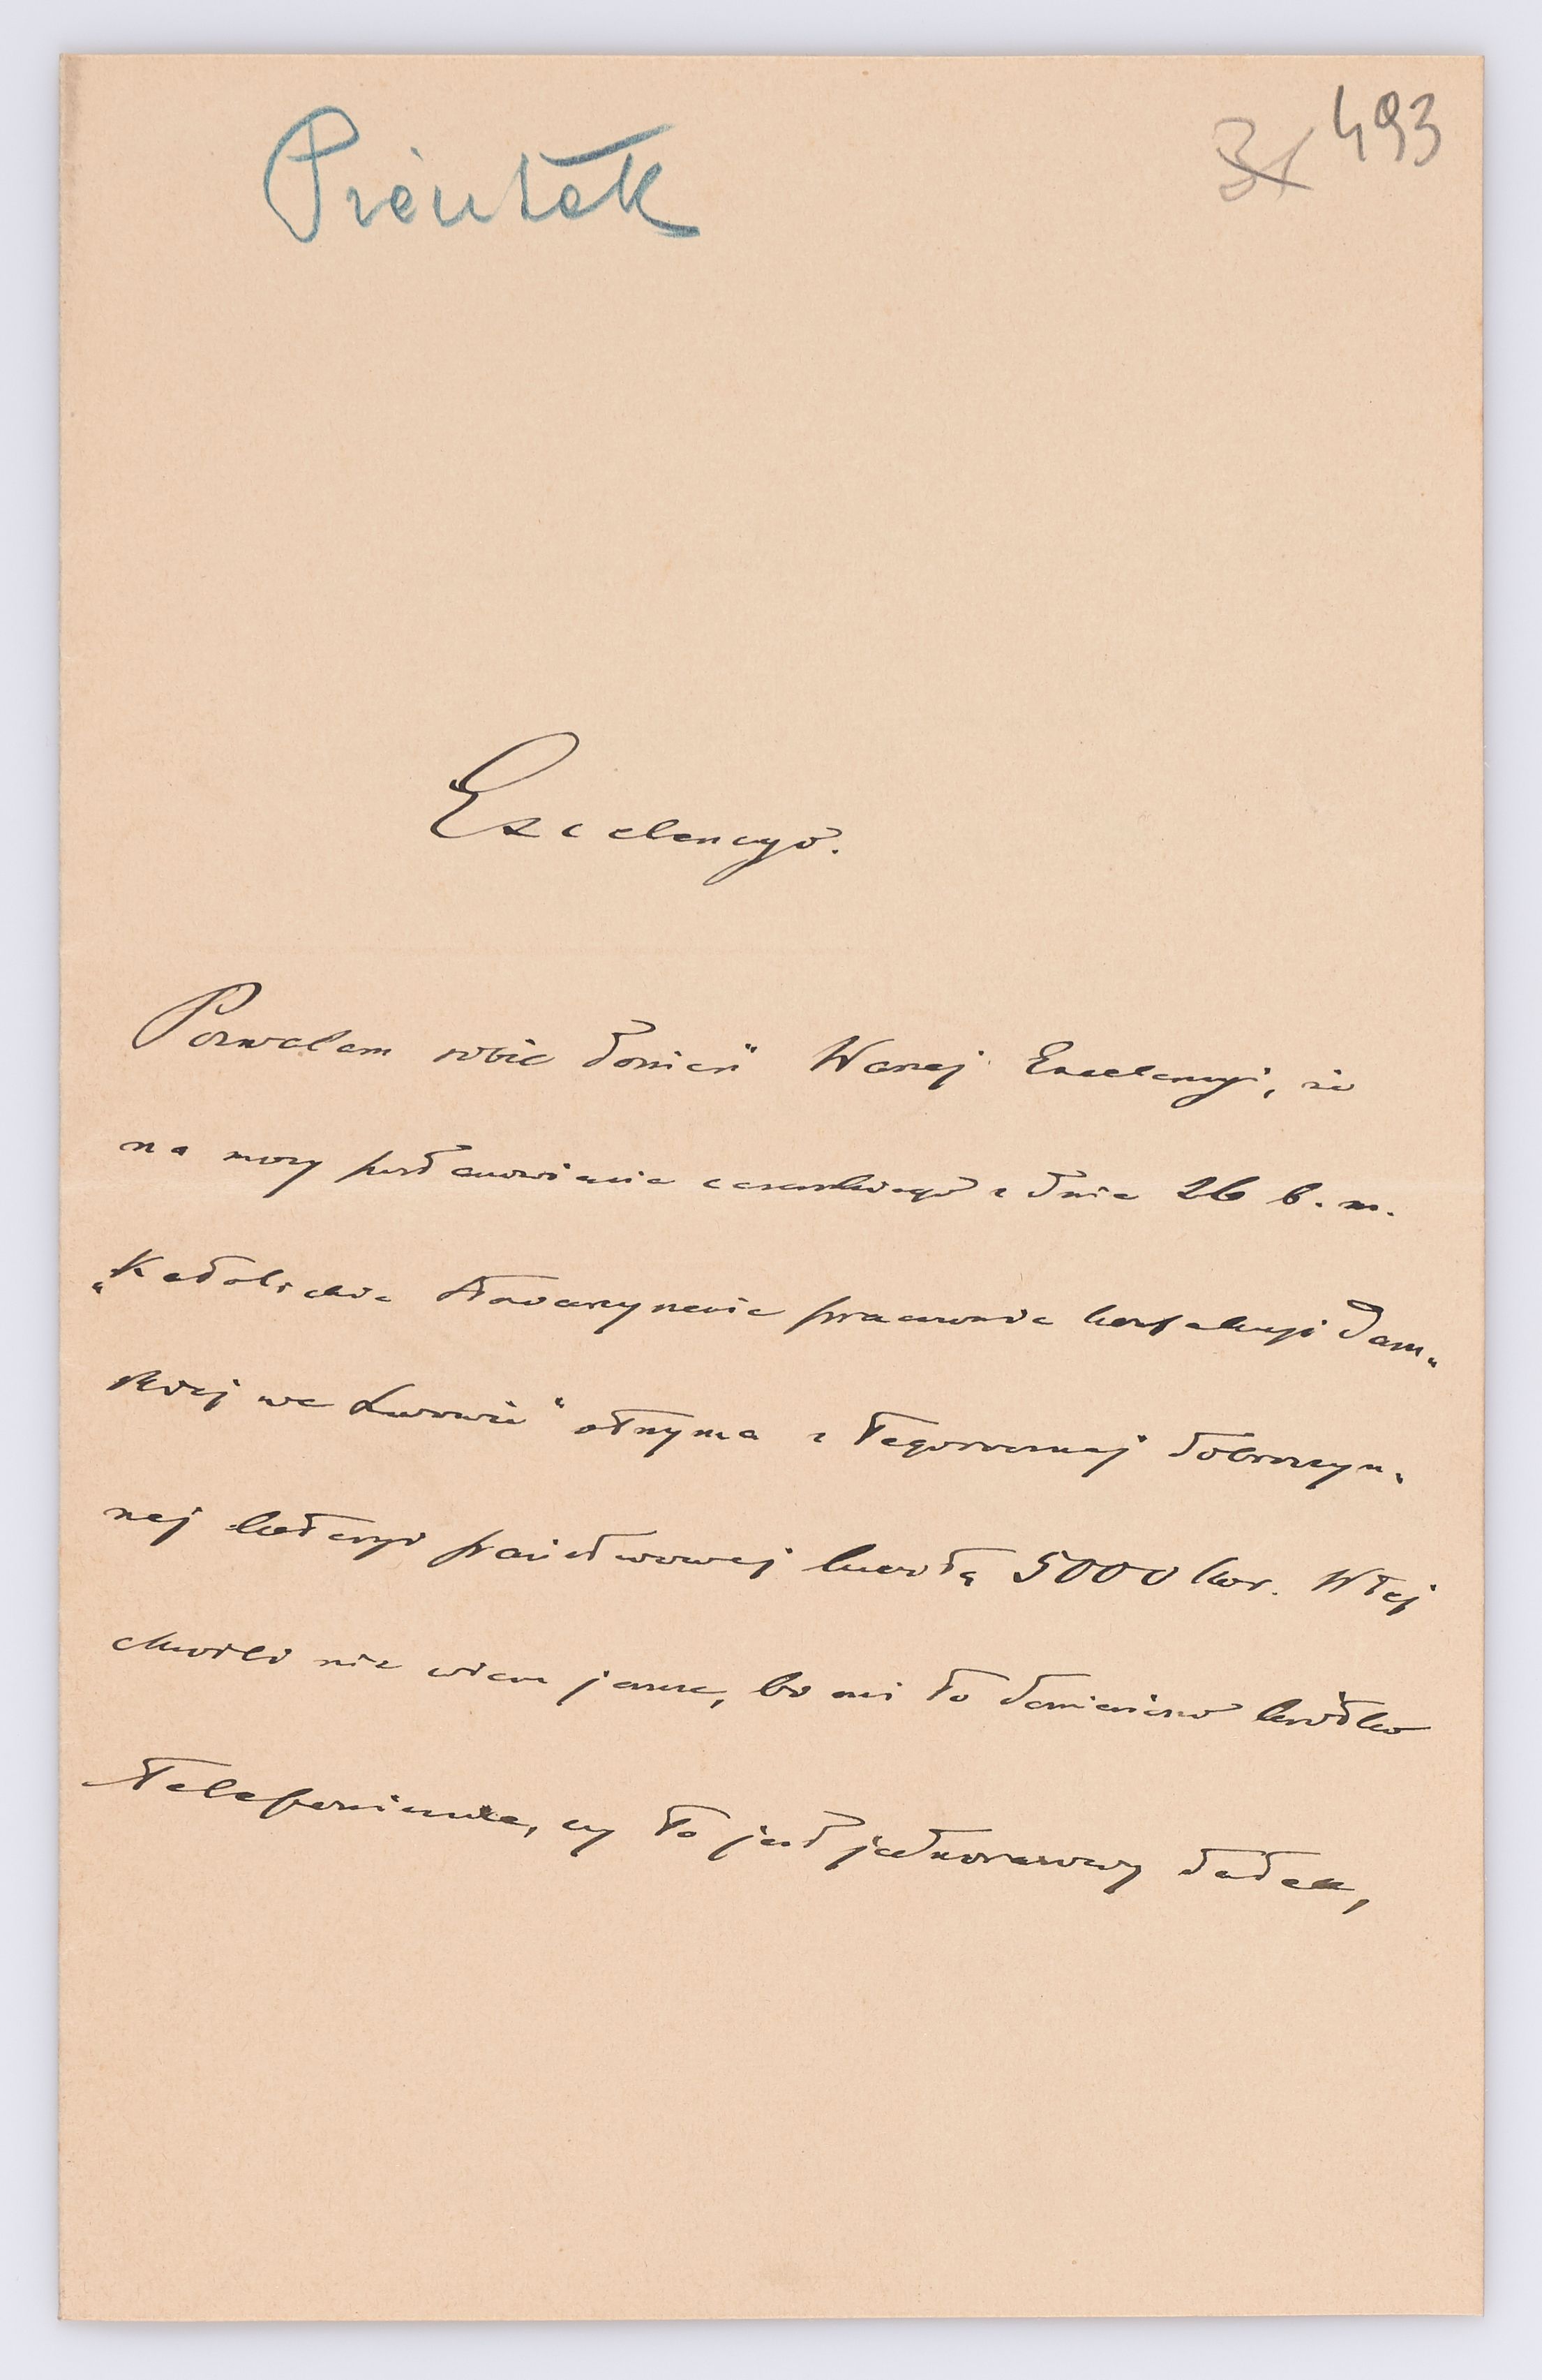 Piętak
31 493
Excelencyo.
Pozwalam sobie donieść Waszej Excelencyi, że
na mocy postanowienia cesarskiego z dnia 26 b. m.
„Katolickie stowarzyszenie pracownic konfekcyi dam„
skiej we Lwowie" otrzyma z tegorocznej dobroczyn„
nej loteryi państwowej kwotę 5000 kor. W tej
chwili nie wiem jeszcze, bo mi to doniesiono krótko
telefonicznie, czy to jest jednorazowy datek,